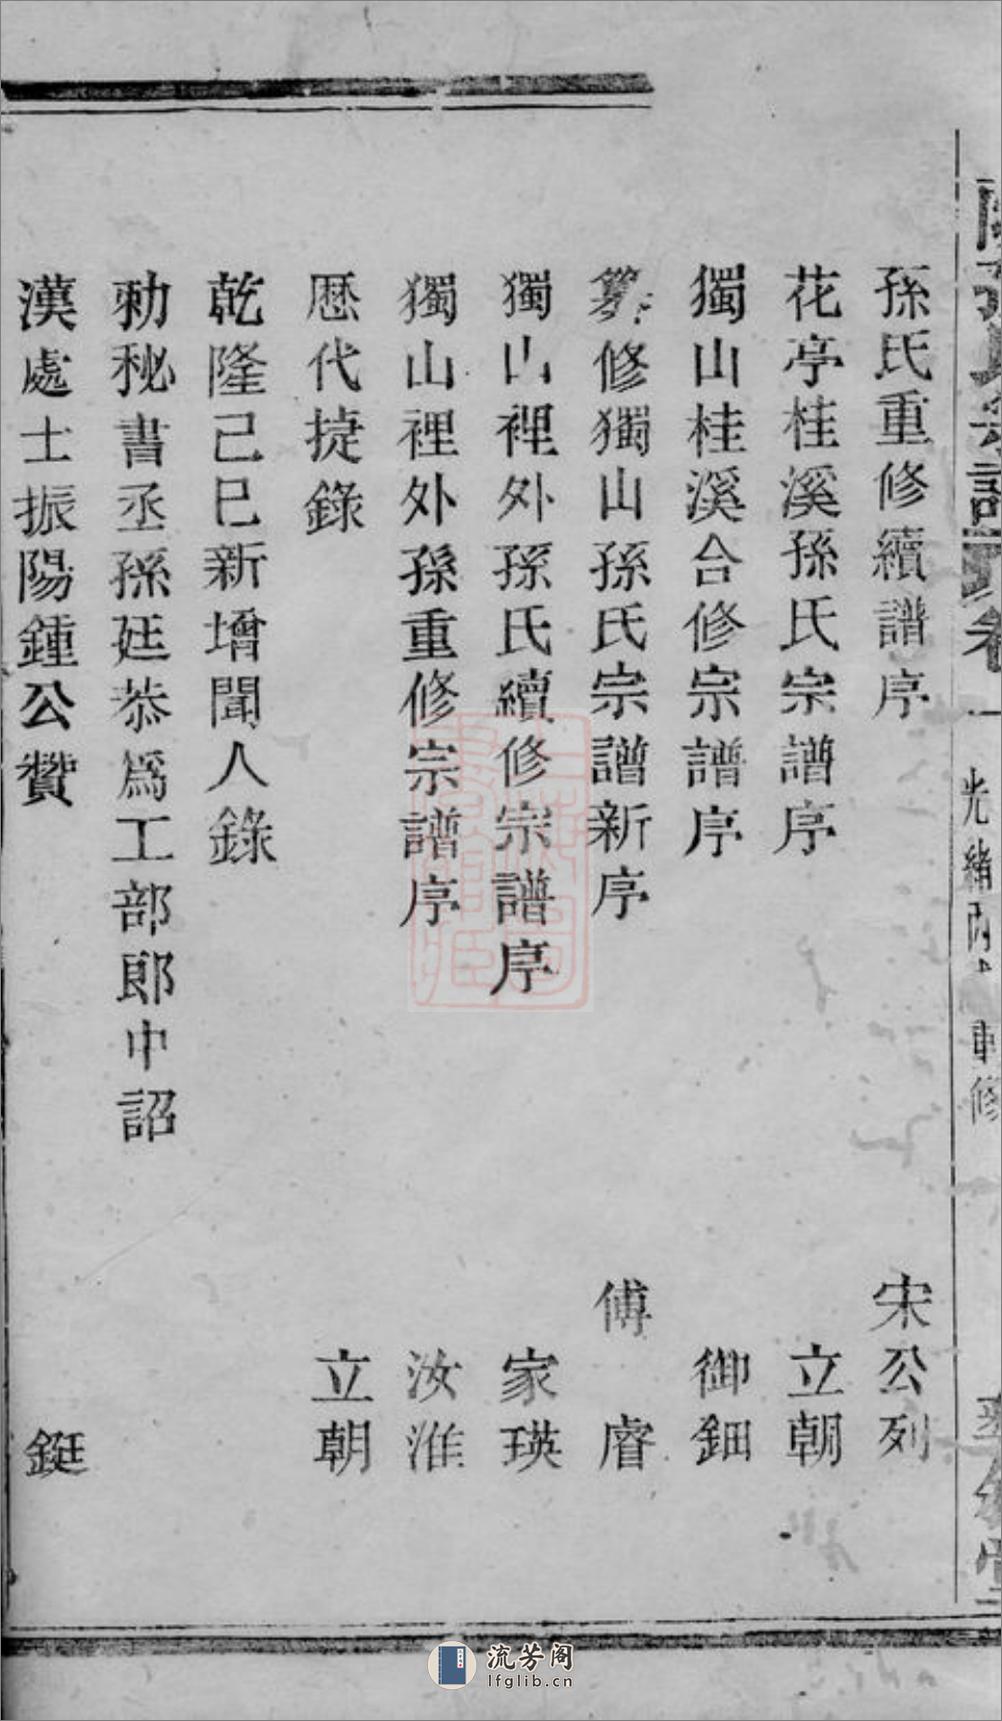 孫氏重修續譜序 宋公列
花亭桂溪孫氏宗譜序 立朝
獨山桂溪合修宗譜序 御鈿
修獨山孫氏宗譜新序 傅睿
獨山裡外孫氏續修宗譜序 家瑛
獨山裡外孫重修宗譜序 汝淮
歷代㨗錄 立朝
乾隆己巳新增聞人錄
勅秘書丞孫廷恭爲工部郎中詔
漢處士振陽鍾公贊 鋌
卷一
光緒丙 修
流芳阁
lfglib.cn